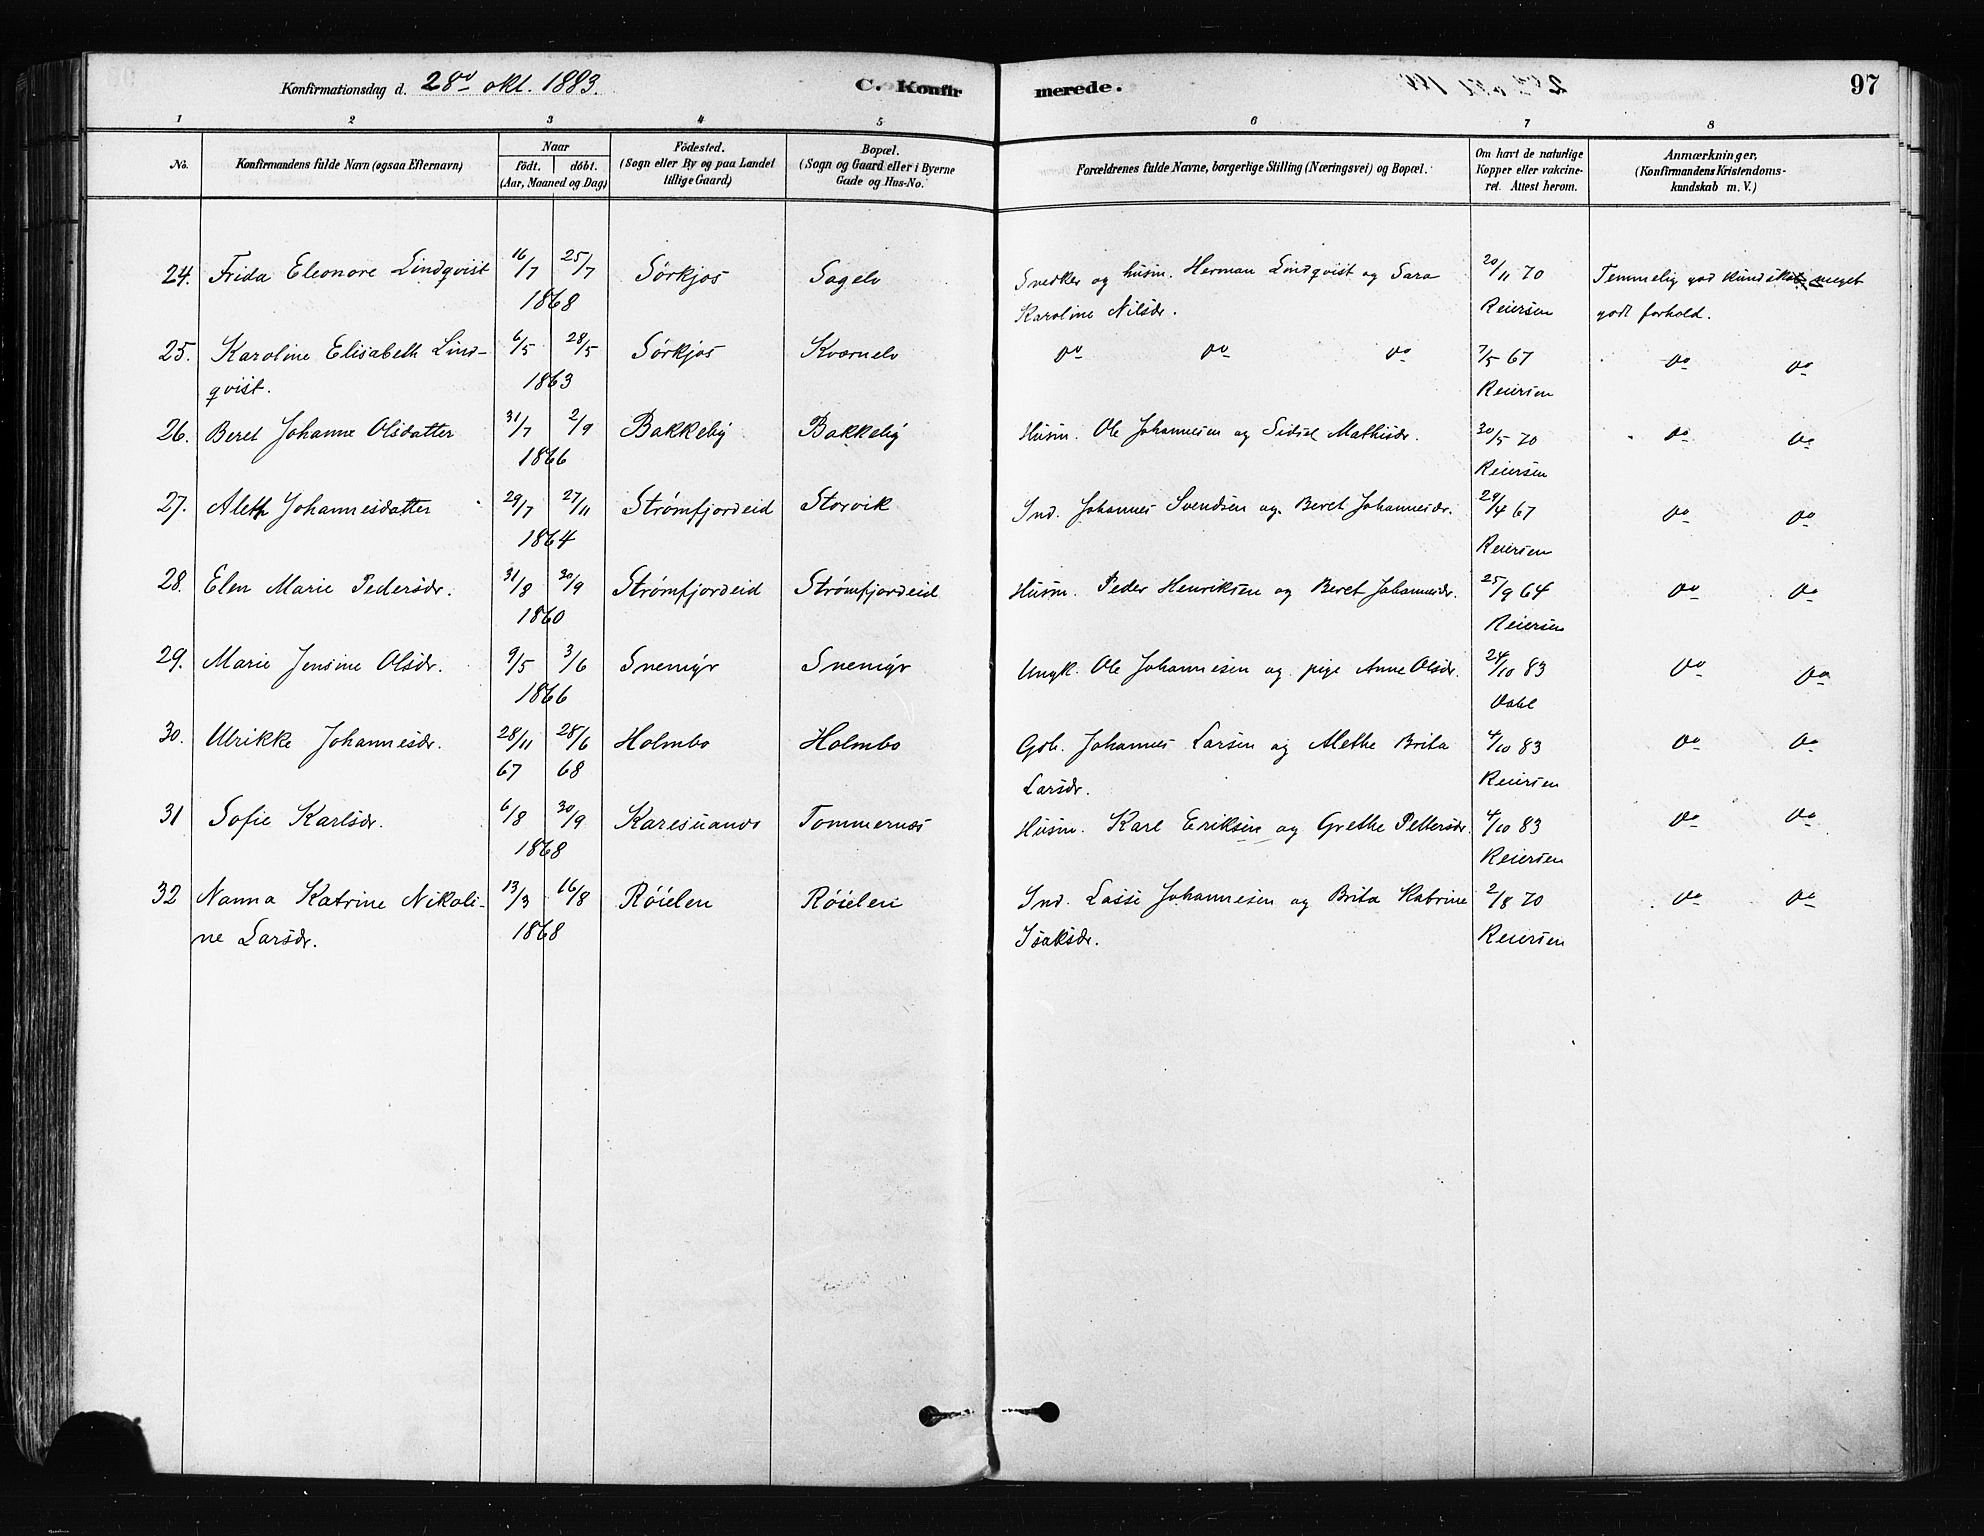 Konfirmationsdag d. 28d okt. 1883.
C. Konfir
merede.
97
1 2 3 4 5 6 7 8
No.
Konfirmandens fulde Navn (ogsaa Efternavn)
Naar
födt. döbt.
(Aar, Maaned og Dag)
Födested.
(Sogn eller By og paa Landet
tillige Gaard)
Bopæl.
(Sogn og Gaard eller i Byerne
Gade og Hus-No.
Forældrenes fulde Navne, borgerlige Stilling (Næringsvei) og Bopæl.
Om havt de naturlige
Kopper eller vakcine-
ret. Attest herom.
Anmærkninger,
(Konfirmandens Kristendoms-
kundskab m. V.)
24. Frida Eleonore Lindqvist 16/7 25/7 Sørkjos Sagelv Snedker og husm. Herman Lindqvist og Sara 20/11 70 Temmelig god kundskab, meget
1868 Karoline Nilsdr. Reiersen godt forhold.
25. Karoline Elisabeth Lind- 6/5 28/5 Sørkjos Kvernelv do do do 7/5 67 do do
qvist. 1863 Reiersen
26. Beret Johanne Olsdatter 31/7 2/9 Bakkeby Bakkeby Husm. Ole Johannesen og Sidsel Mathisdr. 30/5 70 do do
1866 Reiersen
27. Aleth Johannesdatter 29/7 27/11 Strømfjordeid Storvik Ind. Johannes Svendsen og Beret Johannesdr. 29/4 67 do do
1864 Reiersen
28. Elen Marie Pedersdr. 31/8 30/9 Strømfjordeid Strømfjordeid Husm. Peder Henriksen og Beret Johannesdr. 25/9 64 do do
1860 Reiersen
29. Marie Jensine Olsdr. 9/5 3/6 Snemyr Snemyr Ungk. Ole Johannesen og pige Anne Olsdr. 24/10 83 do do
1866 Dahl
30. Ulrikke Johannesdr. 28/11 28/6 Holmbo Holmbo Gbr. Johannes Larsen og Alethe Brita 4/10 83 do do
67 68 Larsdr. Reiersen
31 Sofie Karlsdr. 6/8 30/9 Karesuando Tommernæs Husm. Karl Eriksen og Grethe Pettersdr. 4/10 83 do do
1868 Reiersen
32 Nanna Katrine Nikoli- 13/3 16/8 Röielen Röielen Ind. Lasse Johannesen og Brita Katrine 2/8 70 do do
ne Larsdr. 1868 Isaksdr. Reiersen